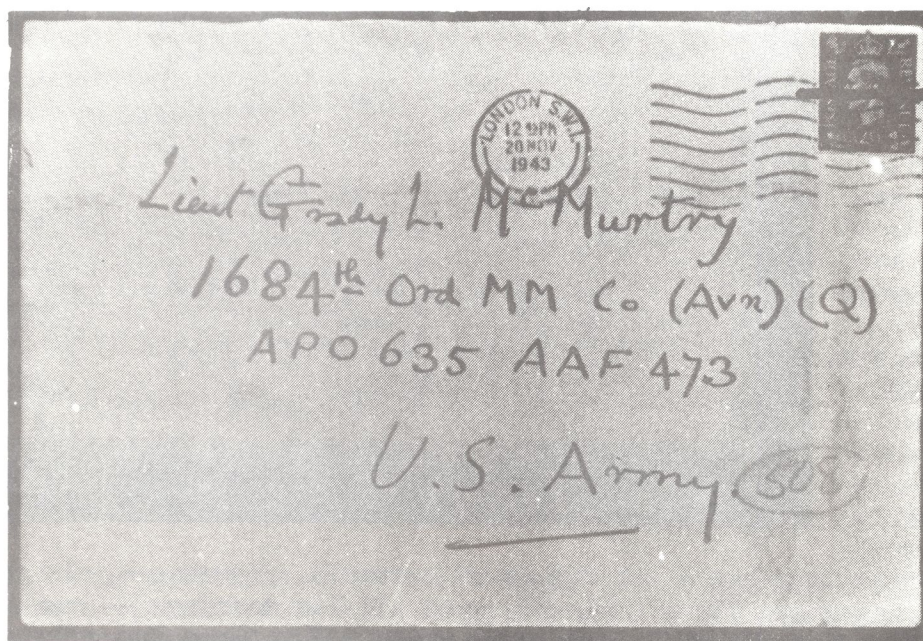 LONDON S.W.1.
12 15 PM
20 NOV
1943
Lieut Grady L. McMurtry
1684th Ord MM Co (Avn) (Q)
APO 635 AAF 473
U.S. Army.
508